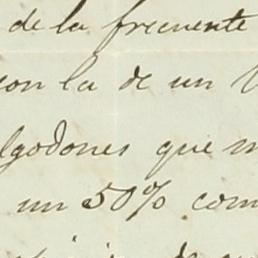 de la frecuente
con la de un
algodones que
un 50% com